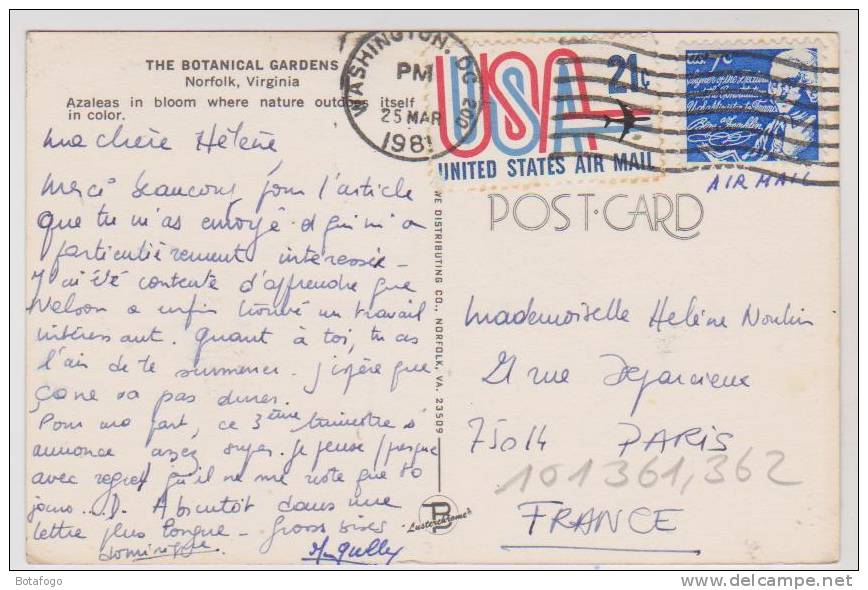 THE BOTANICAL GARDENS
Norfolk, Virginia
Azaleas in bloom where nature outdoes itself
in color.
ma chère Hélène,
Merci beaucoup pour l'article
que tu m'as envoyé & qui m'a
particulièrement intéressée -
J'ai été contente d'apprendre que
Nelson a enfin trouvé un travail
intéressant. Quant à toi, tu as
l'air de te surmener. J'espère que
ça ne va pas durer.
Pour ma part, ce 3ème trimestre s'
annonce assez . Je pense (presque
avec regret) qu'il ne me reste que 80
jours.... A bientôt dans une
lettre plus longue - Gross bises
dominique
WASHINGTON, DC 200
PM
25 MAR
1981
USA 21c
UNITED STATES AIR MAIL
U.S. 7c
Signer of the Declaration
of the Constitution
Ben Franklin
AIR MAIL
POST-CARD
WE DISTRIBUTING CO., NORFOLK, VA. 23509
Mademoiselle Helène
21 rue Deparcieux
75014 PARIS
101361,362
FRANCE
"Lusterchrome"
Botafogo
delcampe.net